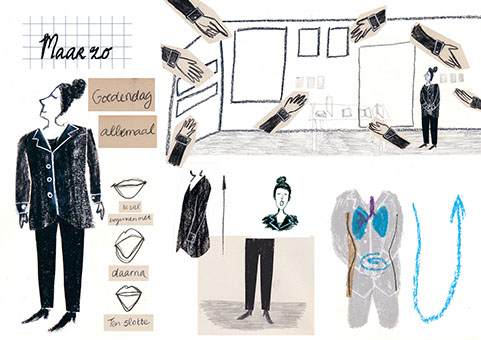 Maar zo
Goedendag
allemaal
Ik zal
beginnen met
daarna
Ten slotte